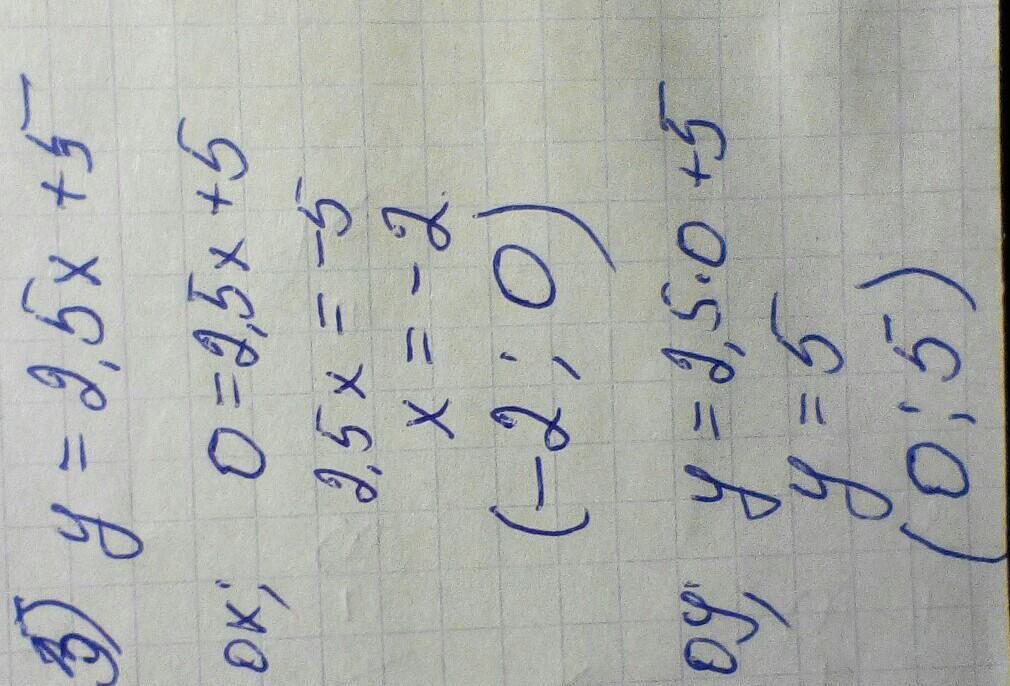 3) y = 2,5x + 5
ox; 0 = 2,5x + 5
2,5x = -5
x = -2
(-2; 0)
oy; y = 2,5·0 + 5
y = 5
(0; 5)